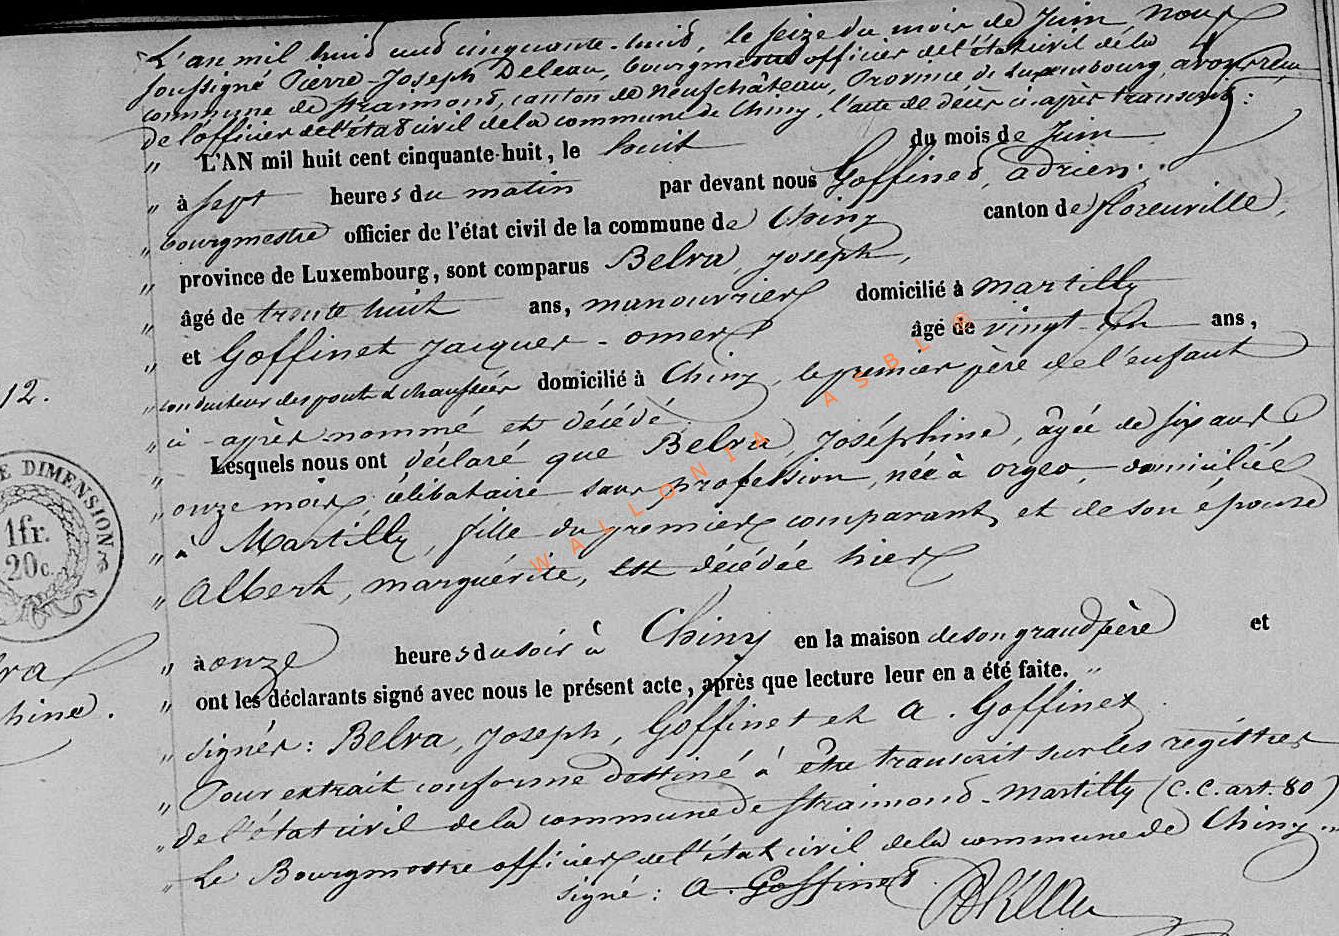 L'an mil huit cent cinquante-huit, le seize du mois de Juin, Nous
soussigné Pierre-Joseph Deleau, bourgmestre officier de l'état civil de la
commune de Straimont, canton de Neufchâteau, Province de Luxembourg, avons reçu
de l'officier de l'état civil de la commune de Chiny, l'acte de décès ci-après transcrit:
„ L'AN mil huit cent cinquante-huit, le huit du mois de Juin
„ à sept heures du matin par devant nous Goffinet, adrien.
„ bourgmestre officier de l'état civil de la commune de Chiny canton de florenville,
„ province de Luxembourg, sont comparus Belva, Joseph,
„ âgé de trente huit ans, manouvrier domicilié à Martilly
„ et Goffinet Jacques-omer âgé de vingt-un ans,
12.
„ conducteur des ponts & chaussées domicilié à Chiny, le premier père de l'enfant
„ ci-après nommé et décédé
„ Lesquels nous ont déclaré que Belva, Joséphine, âgée de six ans
„ onze mois, célibataire sans profession, née à orgeo, domiciliée
„ à Martilly, fille du premier comparant, et de son épouse
„ Albert, marguérite, est décédée hier
„ à onze heures du soir à Chiny en la maison de son grand père et
„ ont les déclarants signé avec nous le présent acte, après que lecture leur en a été faite. „
„ signés: Belva, Joseph, Goffinet et A. Goffinet
„ Pour extrait conforme destiné à être transcrit sur les régistres
„ de l'état civil de la commune de Straimont-Martilly (C.C. art. 80)
„ Le Bourgmestre officier de l'état civil de la commune de Chiny
signé: A. Goffinet
E DIMENSION
1fr.
20c.
WALLONIA ASBL ®